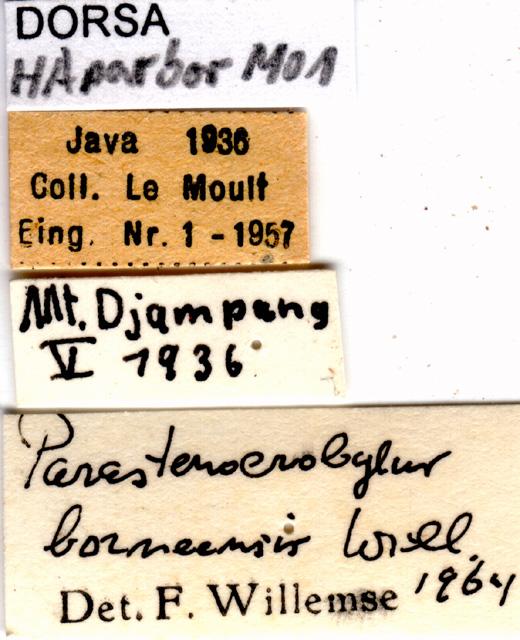 DORSA
HAparbor M01
Java 1936
Coll. Le Moult
Eing. Nr. 1 - 1957
Mt. Djampang
V 1936
Parastenocrobylus
borneensis Will.
Det. F. Willemse 1964